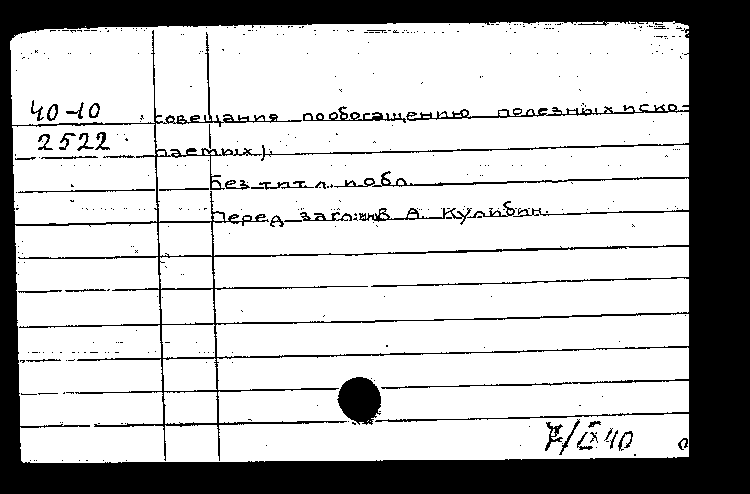 40-10 совещания пообогащению полезных иско-
2522 паемных).
Без тит. л. и обл.
Перед загл: В. А. Кулибин.
7/IX 40